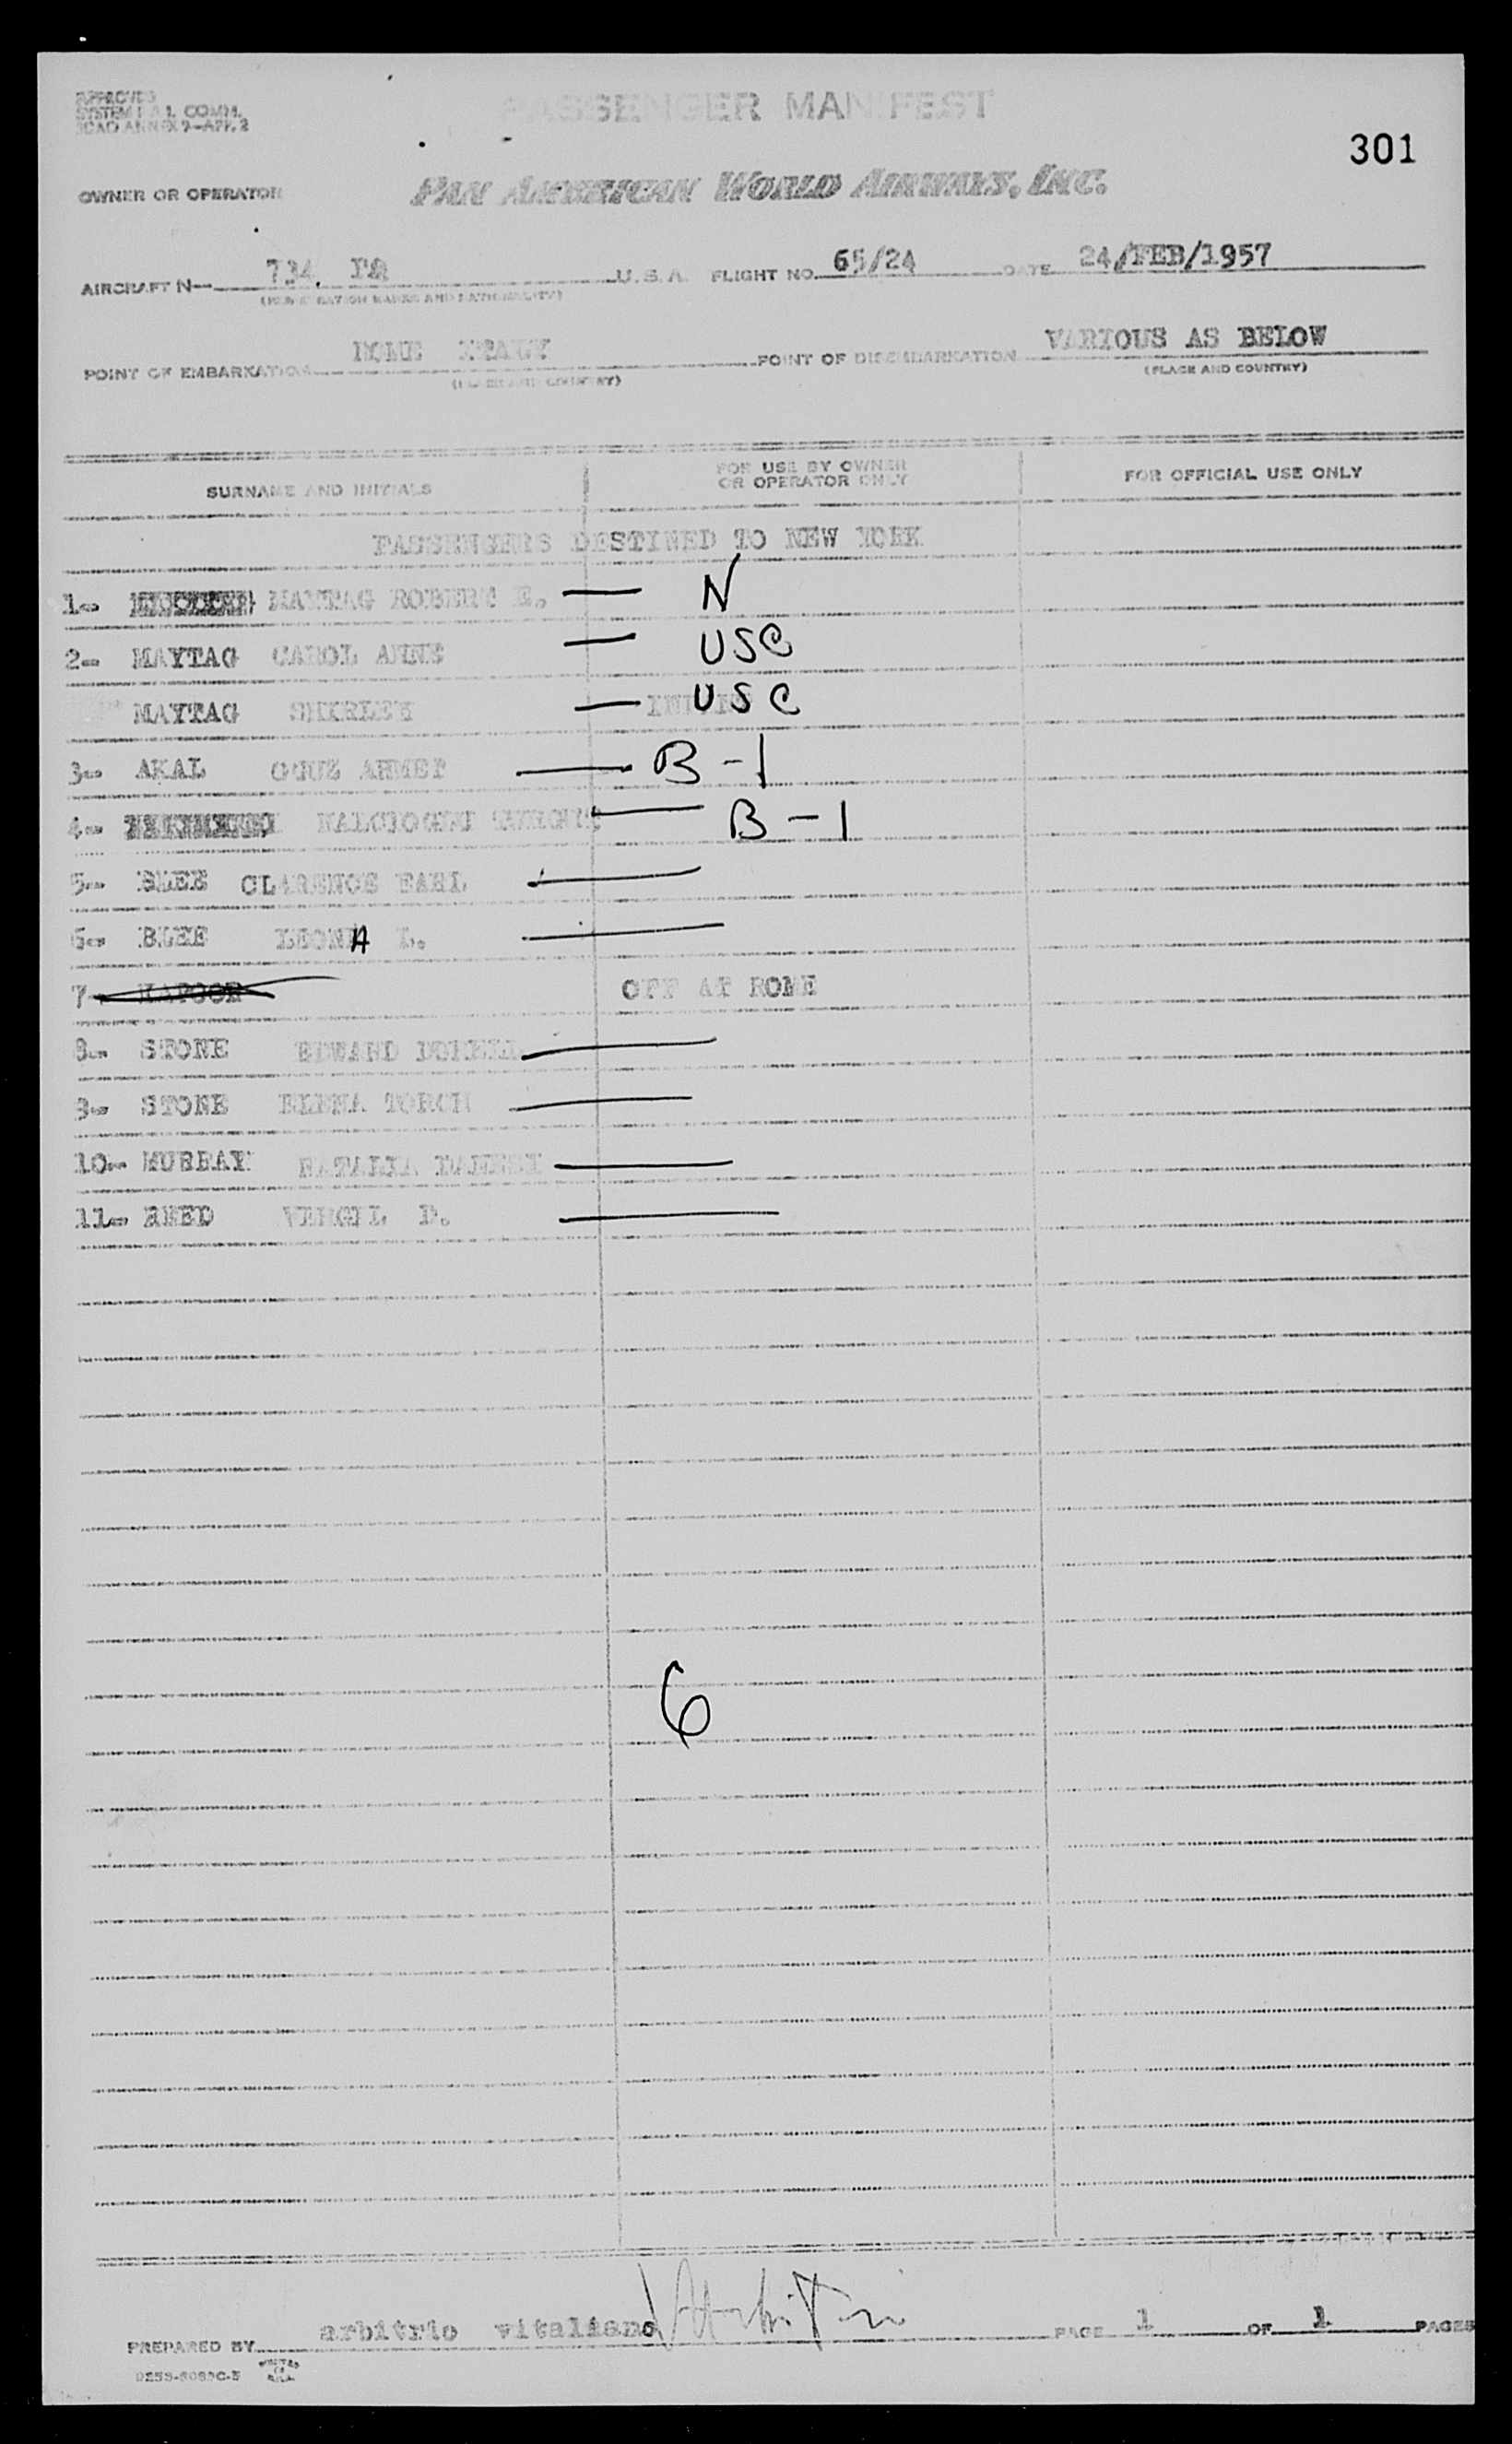 APPROVED
SYSTEM COMM.
ICAO ANNEX 9-APP. 2
PASSENGER MANIFEST
301
OWNER OR OPERATOR PAN AMERICAN WORLD AIRWAYS, INC.
AIRCRAFT N— 734 U.S.A. FLIGHT NO. 65/24 DATE 24/FEB/1957
POINT OF EMBARKATION ROME ITALY POINT OF DISEMBARKATION VARIOUS AS BELOW
(PLACE AND COUNTRY) (PLACE AND COUNTRY)
SURNAME AND INITIALS FOR USE BY OWNER OR OPERATOR ONLY FOR OFFICIAL USE ONLY
PASSENGERS DESTINED TO NEW YORK
1- MAYTAG ROBERT E. — N
2- MAYTAG CAROL ANNE — USC
MAYTAG SHIRLEY — USC
3- AKAL OGUZ AHMET — B-1
4- — B-1
5- BLEE CLARENCE EARL —
6- BLEE LEONA L. —
7- KAPOOR OFF AT ROME
8- STONE EDWARD —
9- STONE ELENA TORCH —
10- MURRAY NATALIA DANESI —
11- REED VERGIL D. —
6
PREPARED BY arbitrio vitaliano PAGE 1 OF 1 PAGES